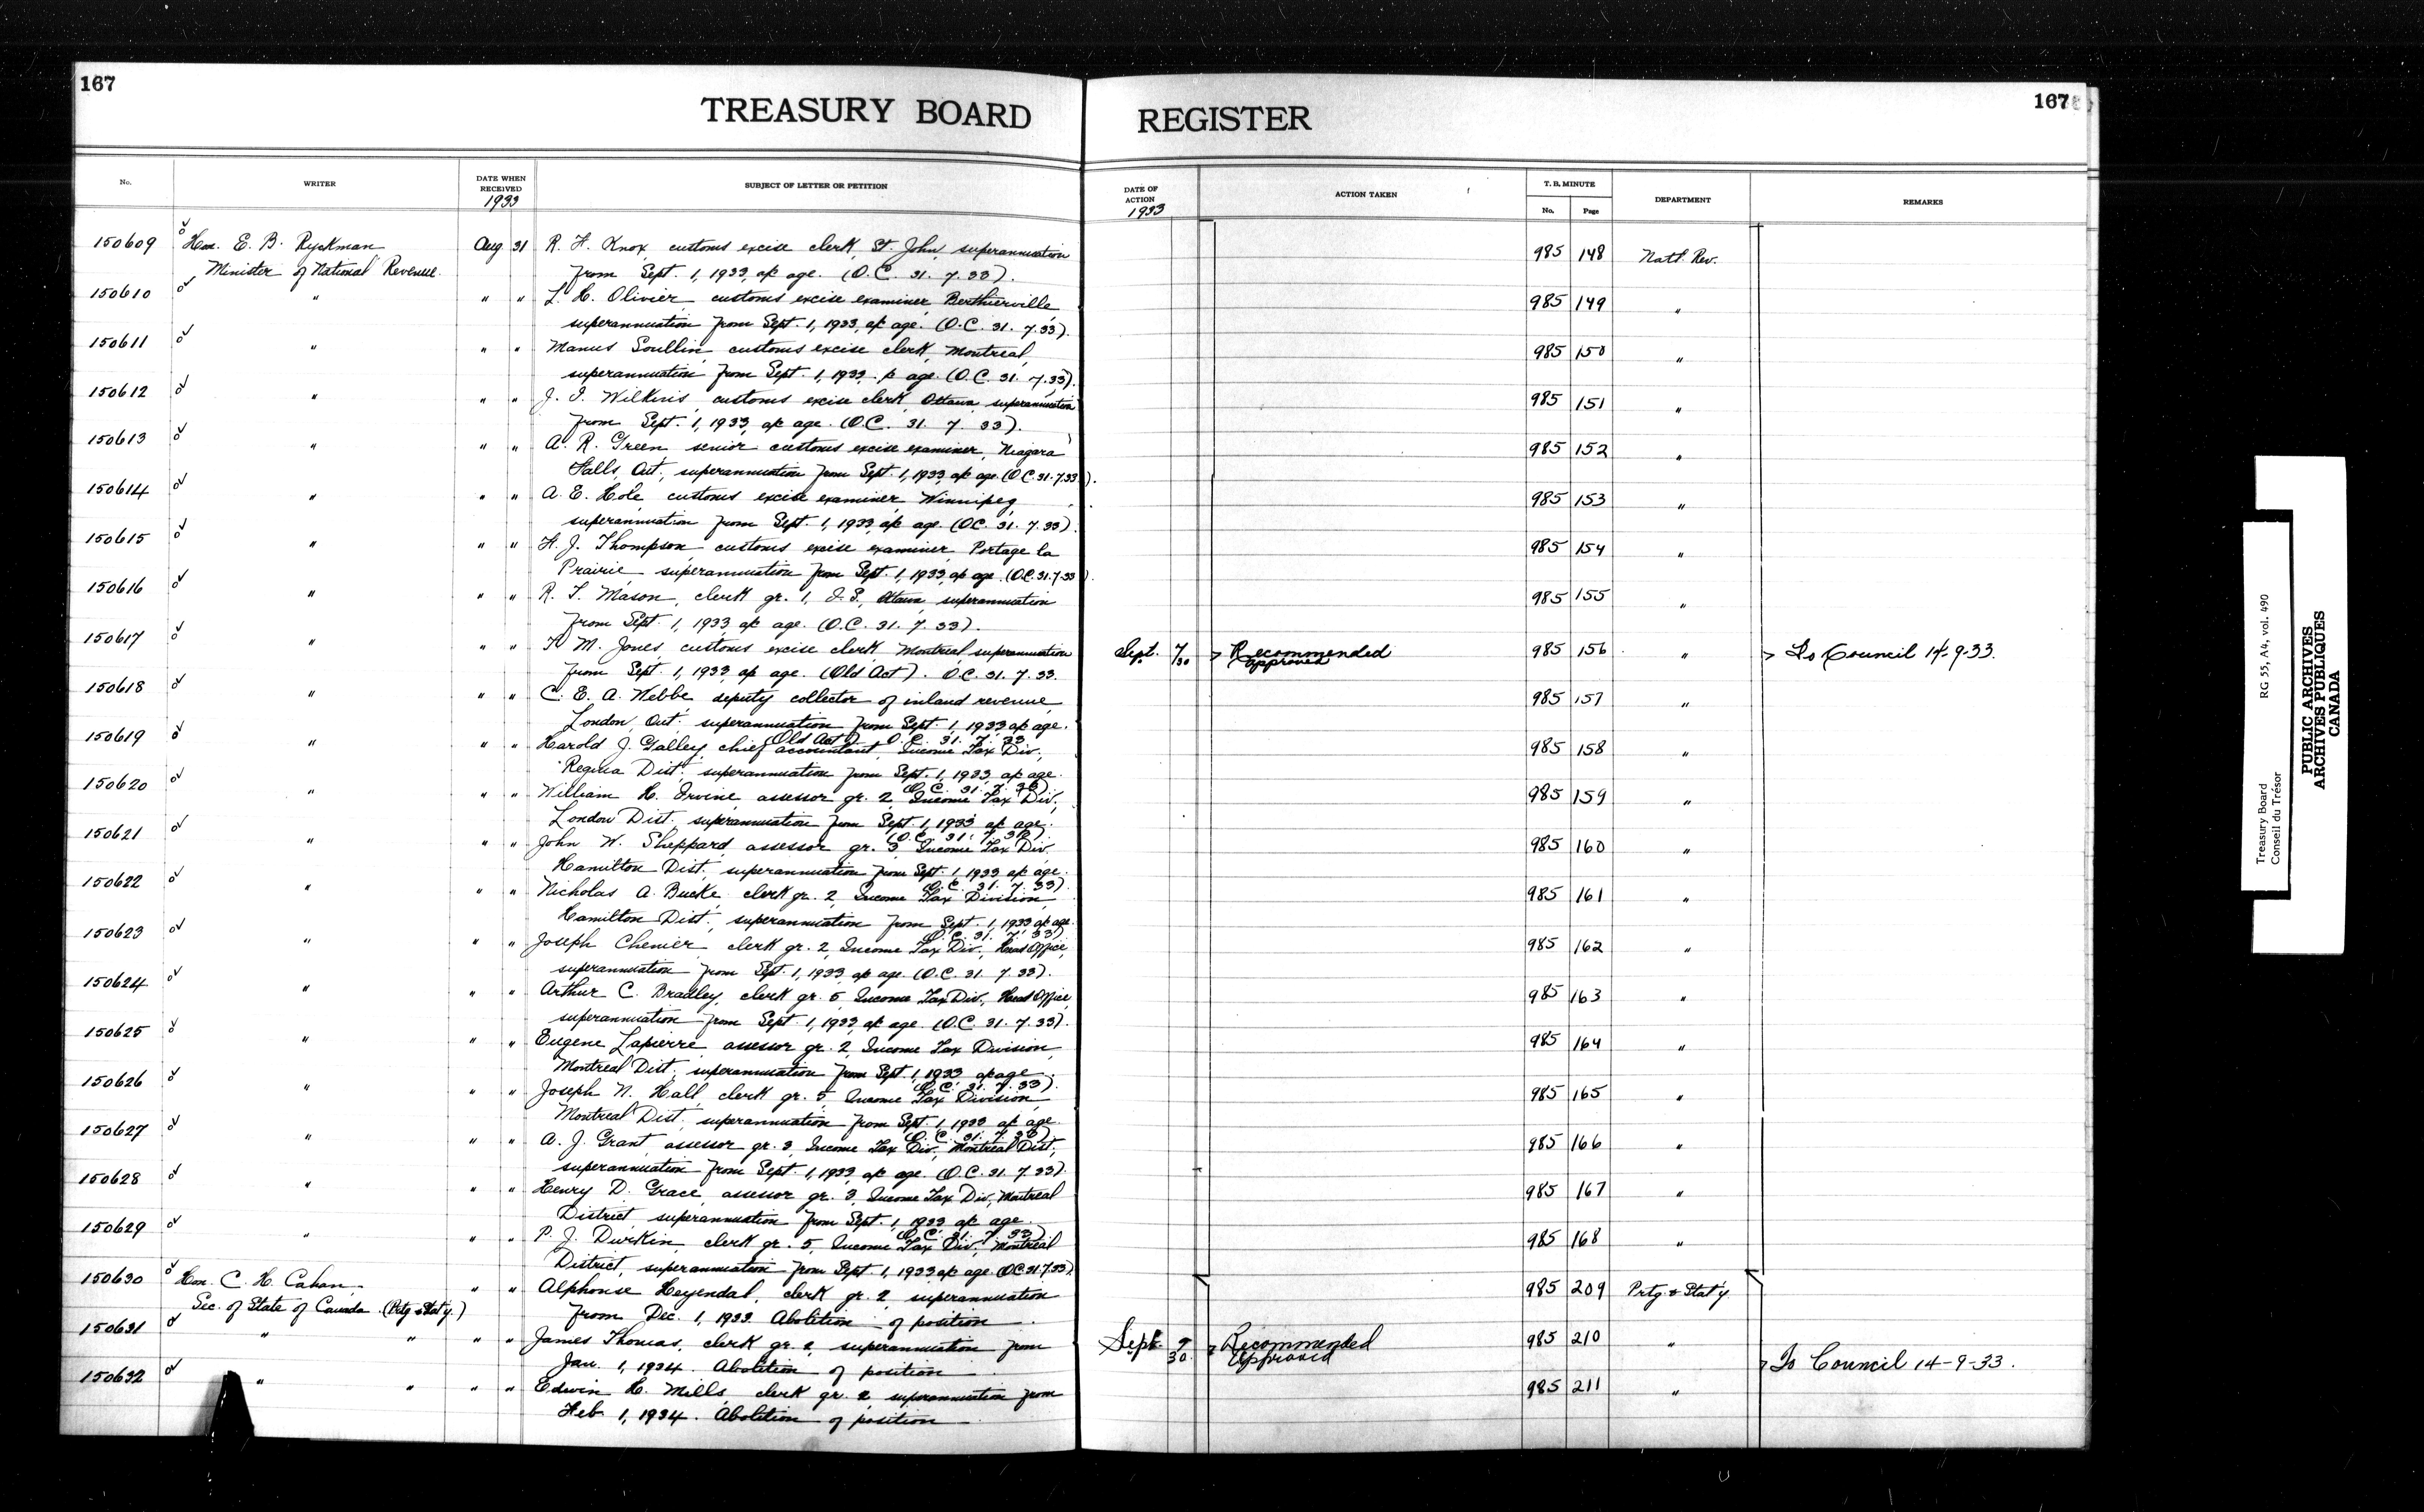 167
TREASURY BOARD REGISTER
167
No. WRITER DATE WHEN RECEIVED 1933 SUBJECT OF LETTER OR PETITION DATE OF ACTION 1933 ACTION TAKEN T. B. MINUTE No. Page DEPARTMENT REMARKS
150609 Hon. E. B. Ryckman Aug 31 R. H. Knox customs excise clerk, St. John, superannuation 985 148 Natl. Rev.
Minister of National Revenue from Sept. 1, 1933, a/c age. (O.C. 31. 7. 33).
150610 " " " L. H. Olivier customs excise examiner Berthierville 985 149 "
superannuation from Sept. 1, 1933, a/c age. (O.C. 31. 7. 33).
150611 " " " Manus customs excise clerk, Montreal, 985 150 "
superannuation from Sept. 1, 1933. a/c age. (O.C. 31. 7. 33).
150612 " " " J. I. Wilkins, customs excise clerk, Ottawa, superannuation 985 151 "
from Sept. 1, 1933, a/c age. (O.C. 31. 7. 33).
150613 " " " A. R. Green, senior customs excise examiner, Niagara 985 152 "
Falls, Ont., superannuation from Sept. 1, 1933, a/c age. (O.C. 31. 7. 33).
150614 " " " A. E. Hole customs excise examiner, Winnipeg, 985 153 "
superannuation from Sept. 1, 1933, a/c age. (O.C. 31. 7. 33).
150615 " " " H. J. Thompson customs excise examiner, Portage la 985 154 "
Prairie, superannuation from Sept. 1, 1933, a/c age. (O.C. 31. 7. 33).
150616 " " " R. T. Mason, clerk gr. 1, Ottawa, superannuation 985 155 "
from Sept. 1, 1933, a/c age. (O.C. 31. 7. 33).
150617 " " " M. Jones, customs excise clerk Montreal superannuation Sept. 7/30 Recommended approved 985 156 " To Council 14-9-33.
from Sept. 1, 1933, a/c age. (Old Act). O.C. 31. 7. 33.
150618 " " " C. E. A. Webbe, deputy collector of inland revenue, 985 157 "
London, Ont. superannuation from Sept. 1, 1933 a/c age.
(Old Act). O.C. 31. 7. 33
150619 " " " Harold J. Galley, chief accountant, Income Tax Div., 985 158 "
Regina Dist., superannuation from Sept. 1, 1933, a/c age.
(O.C. 31. 7. 33)
150620 " " " William H. Irvine, assessor gr. 2, Income Tax Div., 985 159 "
London Dist. superannuation from Sept. 1, 1933 a/c age.
(O.C. 31. 7. 33).
150621 " " " John W. Sheppard, assessor gr. 3, Income Tax Div. 985 160 "
Hamilton Dist., superannuation from Sept. 1, 1933 a/c age.
(O.C. 31. 7. 33).
150622 " " " Nicholas A. Bucke, clerk gr. 2, Income Tax Division, 985 161 "
Hamilton Dist., superannuation from Sept. 1, 1933 a/c age.
(O.C. 31. 7. 33)
150623 " " " Joseph Chenier, clerk gr. 2, Income Tax Div., Head Office, 985 162 "
superannuation from Sept. 1, 1933, a/c age. (O.C. 31. 7. 33).
150624 " " " Arthur C. Bradley, clerk gr. 5, Income Tax Div., Head Office, 985 163 "
superannuation from Sept. 1, 1933, a/c age. (O.C. 31. 7. 33).
150625 " " " Eugene Lapierre, assessor gr. 2, Income Tax Division 985 164 "
Montreal Dist., superannuation from Sept. 1, 1933 a/c age.
(O.C. 31. 7. 33).
150626 " " " Joseph N. Hall, clerk gr. 5, Income Tax Division, 985 165 "
Montreal Dist., superannuation from Sept. 1, 1933 a/c age.
(O.C. 31. 7. 33)
150627 " " " A. J. Grant, assessor gr. 3, Income Tax Div., Montreal Dist., 985 166 "
superannuation from Sept. 1, 1933, a/c age. (O.C. 31. 7. 33).
150628 " " " Henry D. Grace, assessor gr. 3, Income Tax Div., Montreal 985 167 "
District, superannuation from Sept. 1, 1933 a/c age.
(O.C. 31. 7. 33)
150629 " " " P. J. Durkin, clerk gr. 5, Income Tax Div., Montreal 985 168 "
District, superannuation from Sept. 1, 1933, a/c age. (O.C. 31. 7. 33).
150630 Hon. C. H. Cahan, " " Alphonse Heyendal, clerk gr. 2, superannuation 985 209 Prtg. & Stat'y
Sec. of State of Canada (Prtg & Stat'y.) from Dec. 1, 1933. Abolition of position.
150631 " " " " James Thomas, clerk gr. 2, superannuation from Sept. 7/30 Recommended approved 985 210 "
Jan. 1, 1934. Abolition of position. To Council 14-9-33.
150632 " " " " Edwin H. Mills clerk gr. 2 superannuation from 985 211 "
Feb. 1, 1934. Abolition of position.
Treasury Board RG 55, A4, vol. 490
Conseil du Trésor
PUBLIC ARCHIVES
ARCHIVES PUBLIQUES
CANADA